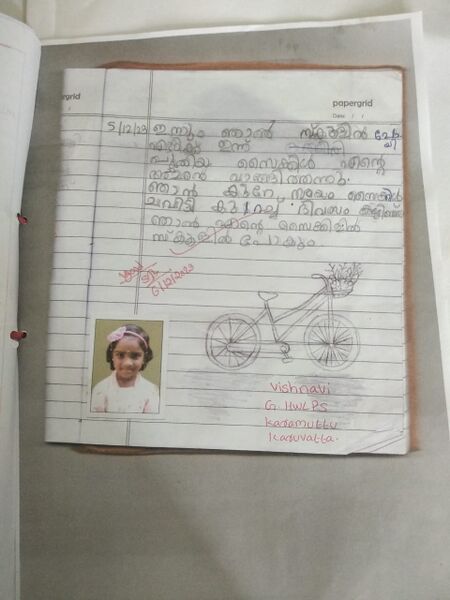 papergrid
Date: / /
5/12/23 ഇന്നും ഞാൻ സ്കൂളിൽ പോയി
എനിക്ക് ഇന്ന്
പുതിയ സൈക്കിൾ എന്റെ
വാങ്ങി തന്നു.
ഞാൻ കുറേ സമയം സൈക്കിൾ
ചവിട്ടി കുറച്ച് ദിവസം കഴിഞ്ഞ്
ഞാൻ എന്റെ സൈക്കിളിൽ
സ്കൂളിൽ പോകും
6/12/2023
Vishnavi
G HWLPS
Kadamuttu
Kaduvatta.